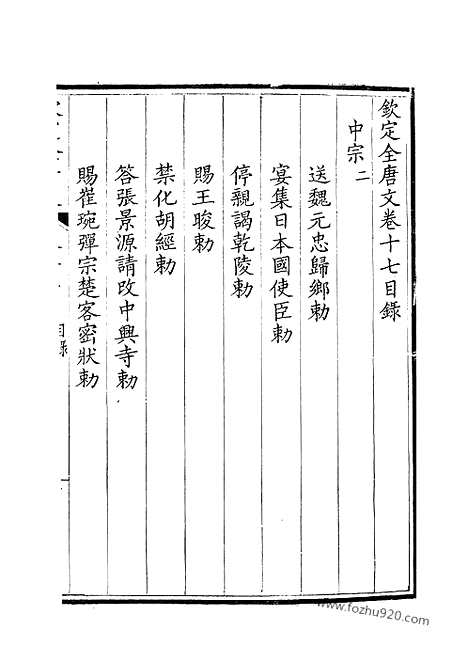 欽定全唐文卷十七目錄
中宗二
送魏元忠歸鄉勅
宴集日本國使臣勅
停親謁乾陵勅
賜王晙勅
禁化胡經勅
答張景源請改中興寺勅
賜崔琬彈宗楚客密狀勅
目錄
www.fozhu920.com